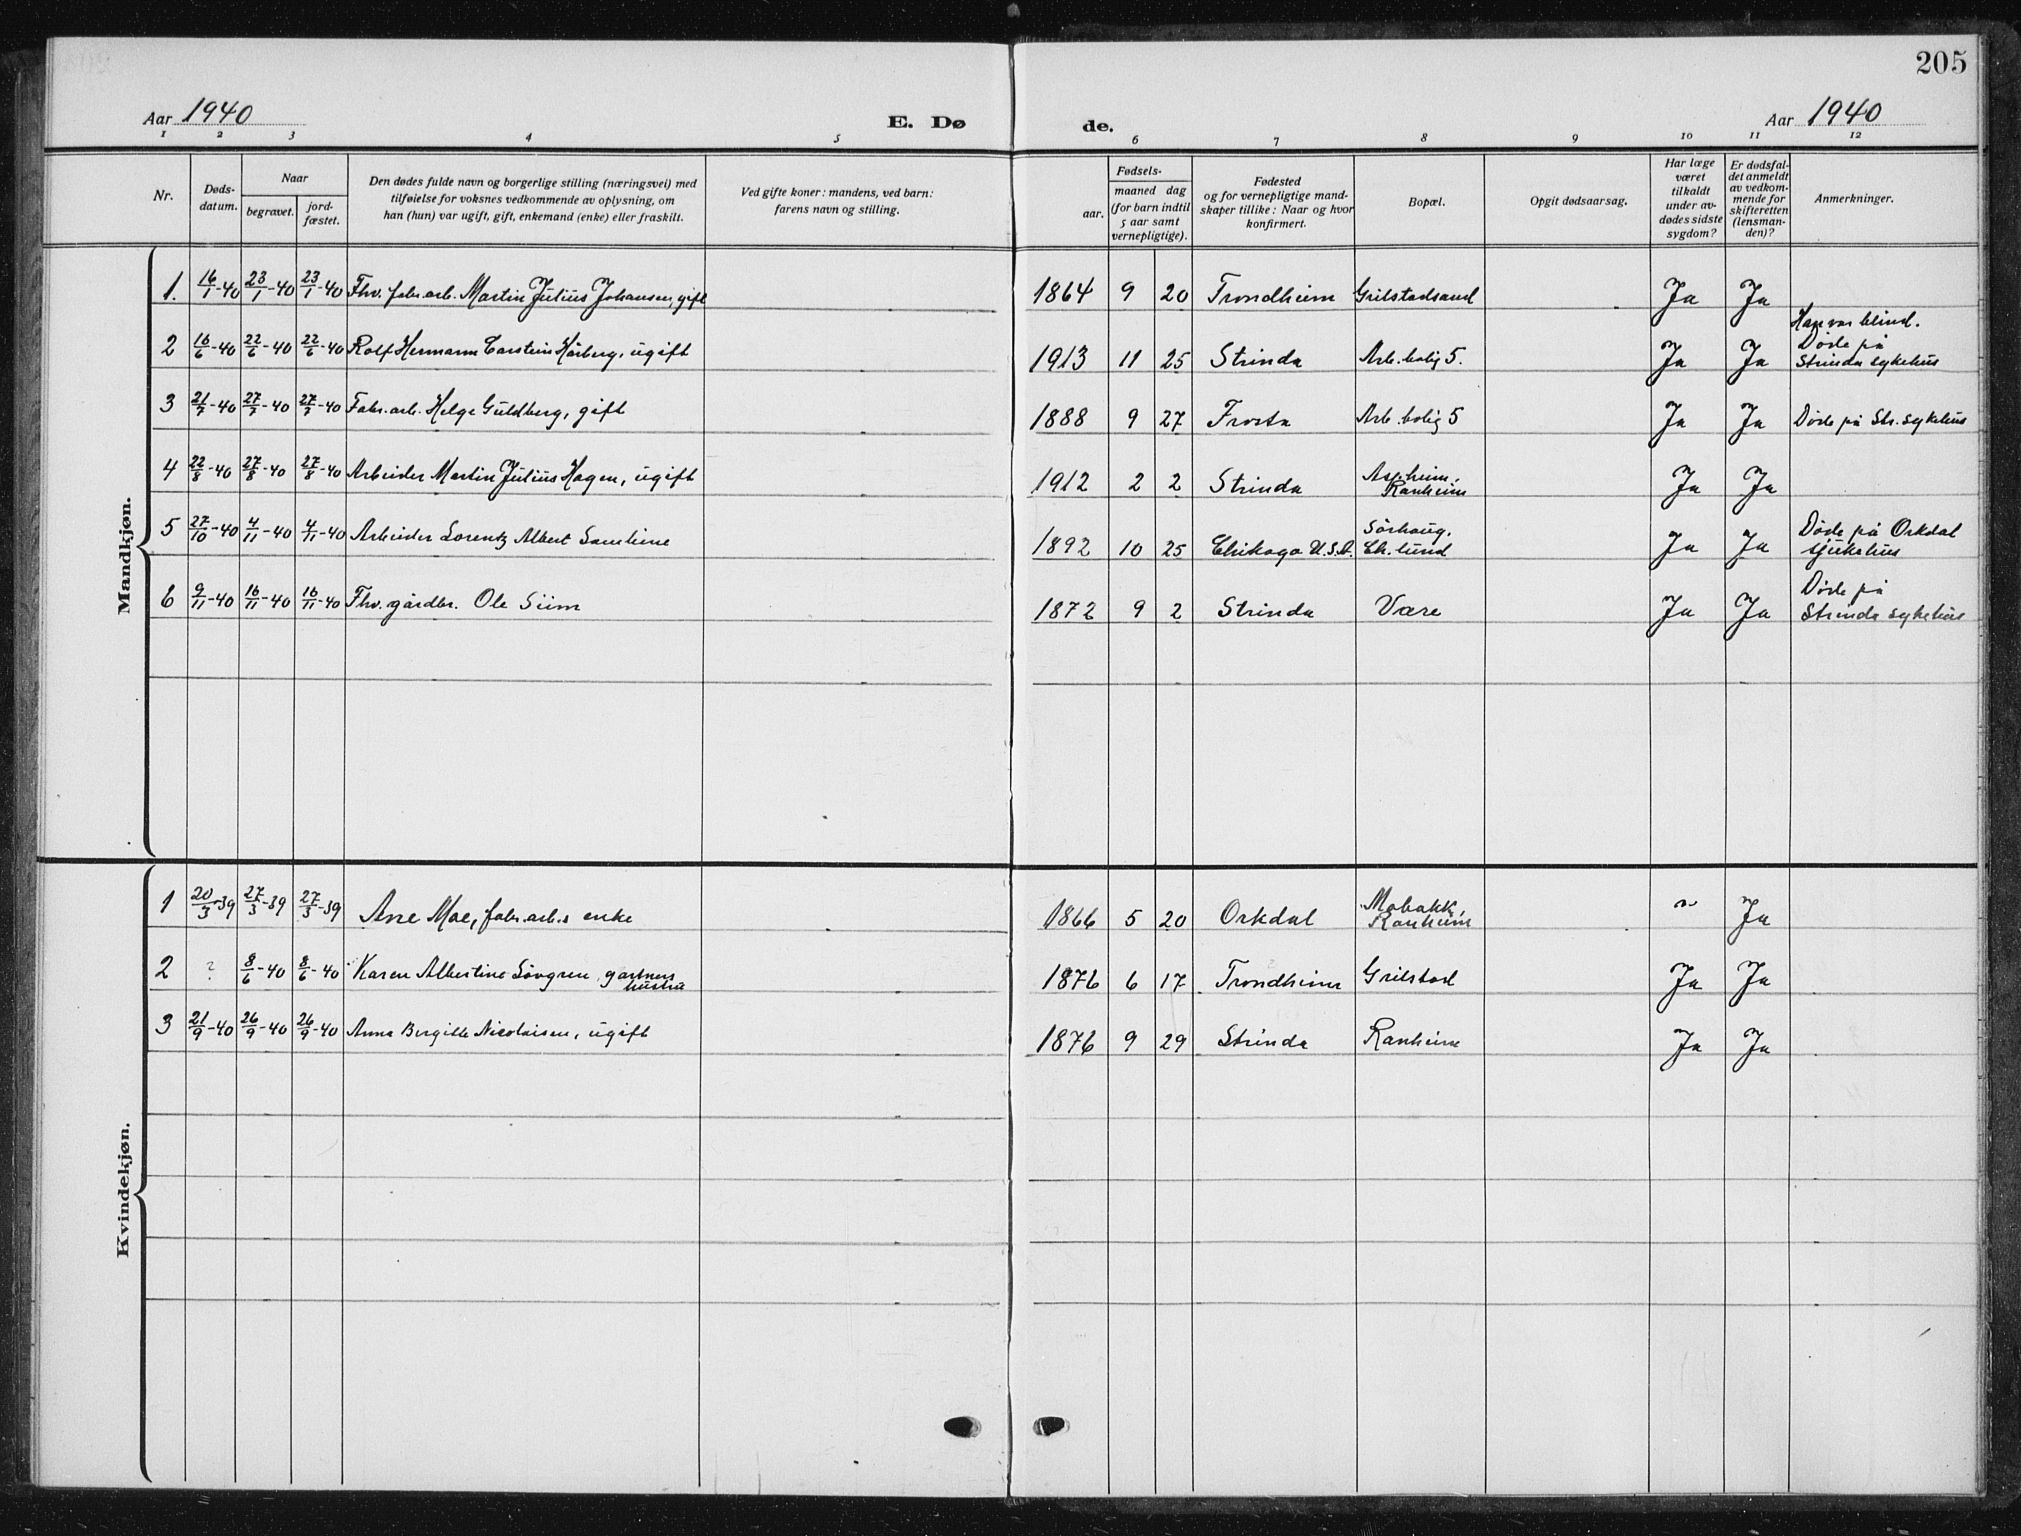 205
Aar 1940 E. Dø de. Aar 1940
1 2 3 4 5 6 7 8 9 10 11 12
Nr.
Døds-
datum.
Naar
begravet.
jord-
fæstet.
Den dødes fulde navn og borgerlige stilling (næringsvei) med
tilføielse for voksnes vedkommende av oplysning, om
han (hun) var ugift, gift, enkemand (enke) eller fraskilt.
Ved gifte koner: mandens, ved barn:
farens navn og stilling.
Fødsels-
aar.
maaned dag
(for barn indtil
5 aar samt
vernepligtige).
Fødested
og for vernepligtige mand-
skaper tillike: Naar og hvor
konfirmert.
Bopæl.
Opgit dødsaarsag.
Har læge
været
tilkaldt
under av-
dødes sidste
sygdom?
Er dødsfal-
det anmeldt
av vedkom-
mende for
skifteretten
(lensman-
den)?
Anmerkninger.
Mandkjøn.
1. 16/1-40 23/1-40 23/1-40 Fhv. fabr.arb. Martin Julius Johansen, gift 1864 9 20 Trondheim Grilstadsand Ja Ja
2 16/6-40 22/6-40 22/6-40 Rolf Hermann Carstein Hårberg, ugift 1913 11 25 Strinda Arb.bolig 5. Ja Ja Han var blind.
Døde på
Strinda sykehus
3 21/7-40 27/7-40 27/7-40 Fabr.arb. Helge Guldberg, gift 1888 9 27 Frosta Arb.bolig 5 Ja Ja Døde på Str. sykehus
4 22/8-40 27/8-40 27/8-40 Arbeider Martin Julius Hagen, ugift 1912 2 2 Strinda Aspheim,
Ranheim Ja Ja
5 27/10-40 4/11-40 4/11-40 Arbeider Lorentz Albert 1892 10 25 Chikago U.S.A. Sörhaug,
Ch.lund Ja Ja Døde på Orkdal
sjukehus
6 9/11-40 16/11-40 16/11-40 Fhv. gårdbr. Ole Siim 1872 9 2 Strinda Være Ja Ja Døde på
Strinda sykehus
Kvindekjøn.
1 20/3-39 27/3-39 27/3-39 Ane Moe, fabr.arb.s enke 1866 5 20 Orkdal Mobakk,
Ranheim Ja
2 ? 8/6-40 8/6-40 Karen Albertine Lövgren, gartners
hustru 1876 6 17 Trondheim Grilstad Ja Ja
3 21/9-40 26/9-40 26/9-40 Anna Bergitte Nicolaisen, ugift 1876 9 29 Strinda Ranheim Ja Ja